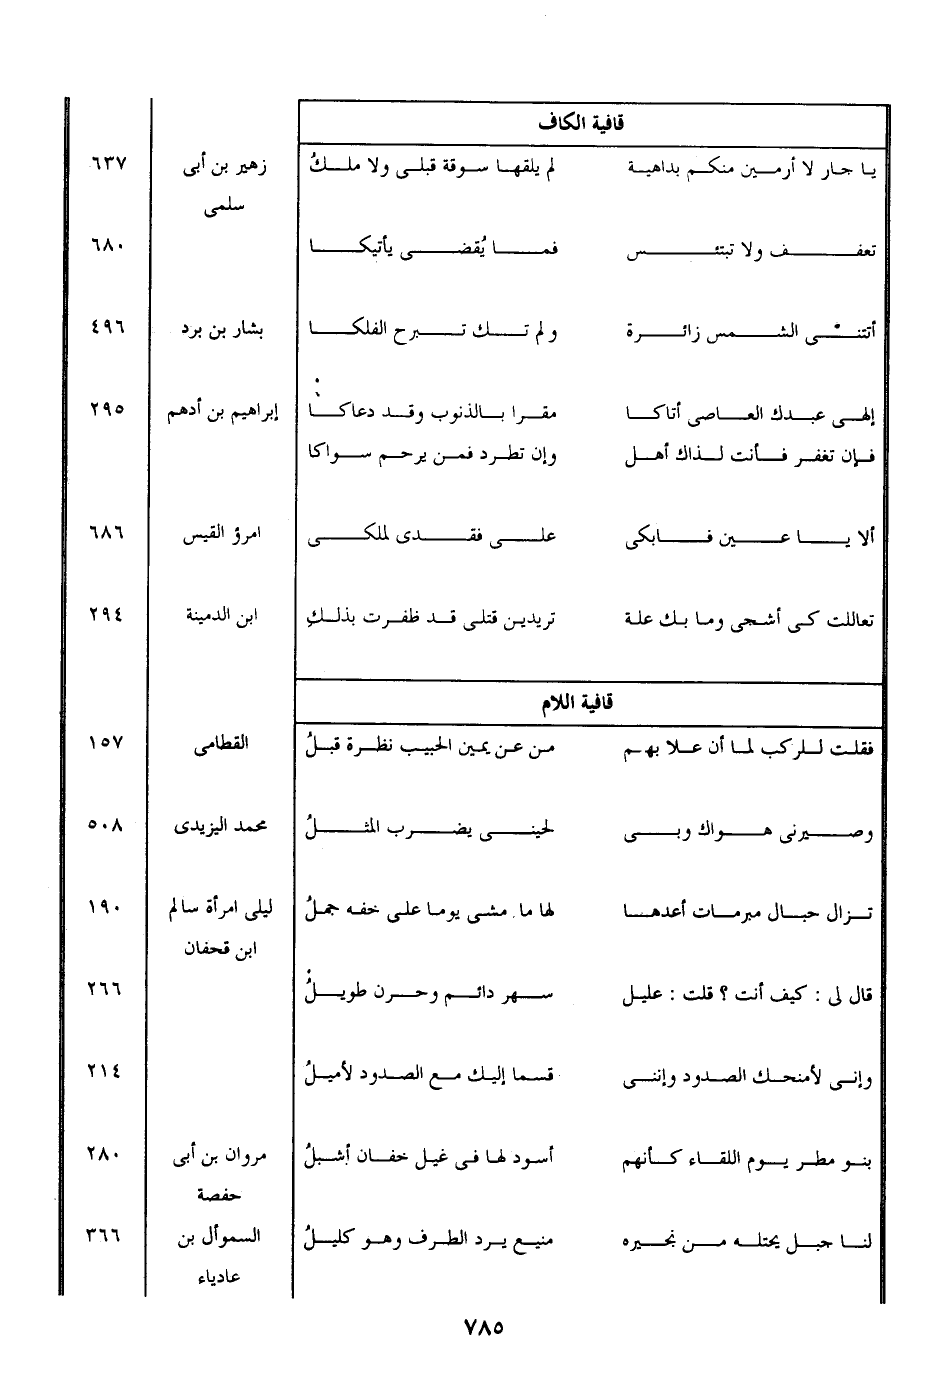 قافية الكاف
يا جار لا أرمين منكم بداهية لم يلقها سوقة قبلى ولا ملكُ زهير بن أبى ٦٣٧
سلمى
تعفف ولا تبتئس فما يُقضى يأتيكا ٦٨٠
أتتنى الشمس زائرة ولم تك تبرح الفلكا بشار بن برد ٤٩٦
إلهى عبدك العاصى أتاكا مقرا بالذنوب وقد دعاكا إبراهيم بن أدهم ٢٩٥
فإن تغفر فأنت لذاك أهل وإن تطرد فمن يرحم سواكا
ألا يا عين فابكى على فقدى لملكى امرؤ القيس ٦٨٦
تعاللت كى أشجى وما بك علة تريدين قتلى قد ظفرت بذلكِ ابن الدمينة ٢٩٤
قافية اللام
فقلت للركب لما أن علا بهم من عن يمين الحبيب نظرة قبلُ القطامى ١٥٧
وصيرنى هواك وبى لحينى يضرب المثلُ محمد اليزيدى ٥٠٨
تزال حبال مبرمات أعدها لها ما مشى يوما على خفه جملُ ليلى امرأة سالم ١٩٠
ابن قحفان
قال لى : كيف أنت ؟ قلت : عليل سهر دائم وحزن طويلُ ٢٦٦
وإنى لأمنحك الصدود وإننى قسما إليك مع الصدود لأميلُ ٢١٤
بنو مطر يوم اللقاء كأنهم أسود لها فى غيل خفان أشبلُ مروان بن أبى ٢٨٠
حفصة
لنا جبل يحتله من نجيره منيع يرد الطرف وهو كليلُ السموأل بن ٣٦٦
عادياء
٧٨٥